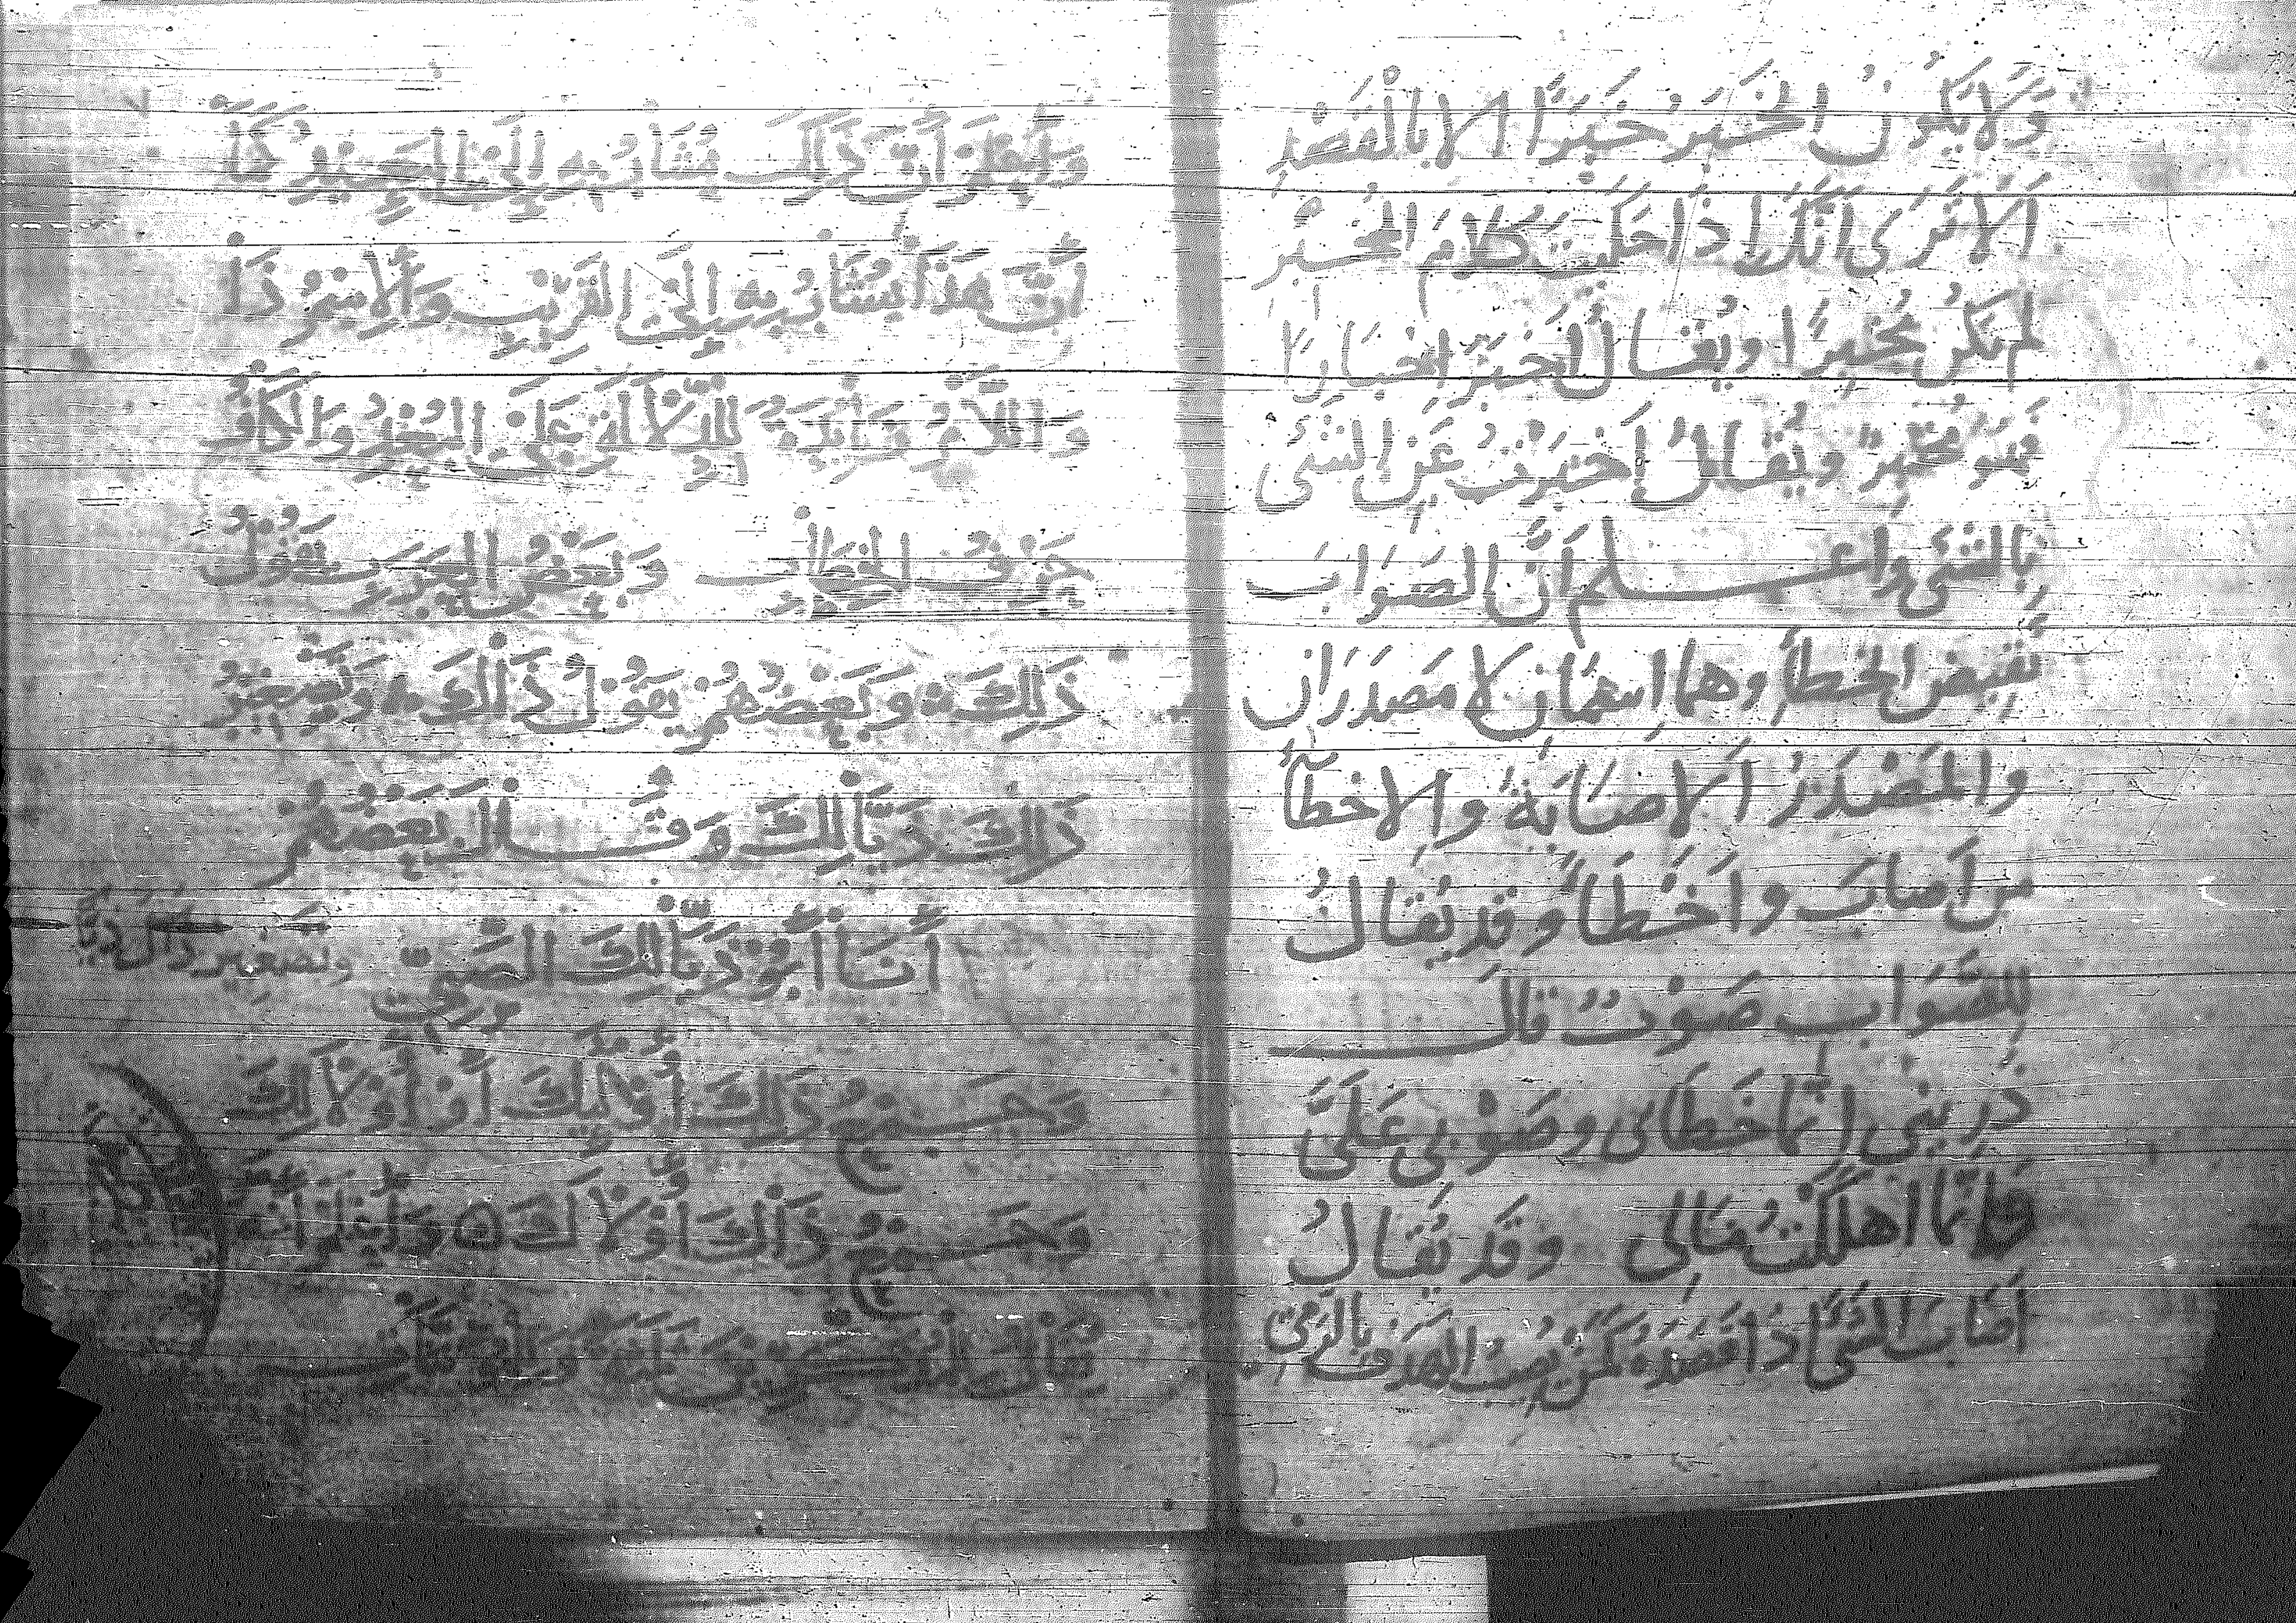 وَلَا يَكُونُ الْخَبَرُ خَبَرًا الا بالْقَصْدِ
اَلَا تَرَى اَنَّكَ اِذَا حَكَيْتَ كَلامَ المُخْبِرِ
لم تكُن مُخْبِرًا ويُقَالُ اَخْبَرَ اِخْبَارًا
فَهُوَ مُخْبِرٌ ويُقَالُ اَخْبَرْتُ عَنِ الشَّىْءِ
بِالشَّىْءِ واعلم اَنَّ الصَوَابَ
نَقِيضُ الخطأِ وهما اِسمَانِ لا مَصْدَرَانِ
والمَصْدَرُ اَلاِصَابَةُ والاِخطآءُ
مِن اَصابَ واَخْطَأَ وقد يُقَالُ
لِلصَّوَابِ صَوْبٌ قال
ذَرِينِى اِنّما خَطَأى وصَوْبِى عَلَىَّ
وَانّما اَهلَكْتُ مَالِى وَقَد يُقَالُ
اَصَابَ الشَّىْءَ اِذَا قَصَدَهُ كَمَن يُصِيبُ الهَدَفَ بِالرَمْىِ
وَلْيُعْلَمْ أَنَّ ذَلِكَ يُشَارُ بِهِ إِلَى الْبَعِيدِ كَمَا
أَنَّ هَذَا يُشَارُ بِهِ إِلَى الْقَرِيبِ وَالْاِسْمُ ذَا
وَاللَّامُ زَائِدَةٌ لِلدِّلَالَةِ عَلَى الْبُعْدِ وَالْكَافُ
حَرْفُ الْخِطَابِ وَبَعْضُ الْعَرَبِ يَقُولُ
ذَلِكَ وَبَعْضُهُمْ يَقُولُ ذَالِكَ وَتَصْغِيرُ
ذَلِكَ ذَيَّالِكَ وَقَالَ بَعْضُهُمْ
أَنَا أَبُو ذَيَّالِكَ الصَّبِيِّ وتصغير ذاك ذَيَّاكَ
وَجَمْعُ ذَلِكَ أُولَئِكَ أَوْ أُولَالِكَ
وَجَمْعُ ذَاكَ أُوْلَاكَ وَلْيُعْلَمْ أَنَّهُ